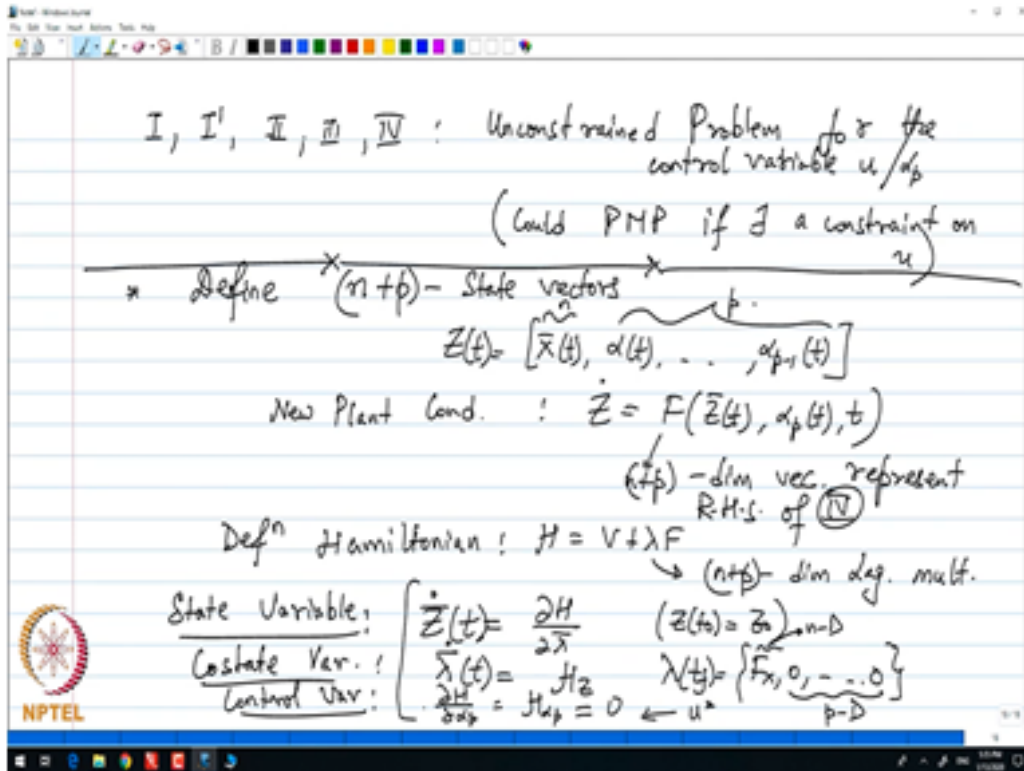 I, I', II, III, IV : Unconstrained Problem for the
control variable u/αp
(Could PMP if ∃ a constraint on
u)
* Define (n+p) - State vectors
n p.
Z(t) = [x̄(t), α(t), . . . , αp-1(t)]
New Plant Cond. : Ż = F(Z̄(t), αp(t), t)
(n+p) - dim vec. represent
R.H.S. of IV
Defn Hamiltonian : H = V + λF
(n+p) - dim Lag. mult.
State Variable : Ż(t) = ∂H/∂λ̄ (Z(t0) = Z0) n-D
Costate Var. : λ̄(t) = Hz λ(tf) = {Fx, 0, - . . 0}
Control Var : ∂H/∂αp = Hαp = 0 ← u* p-D
NPTEL